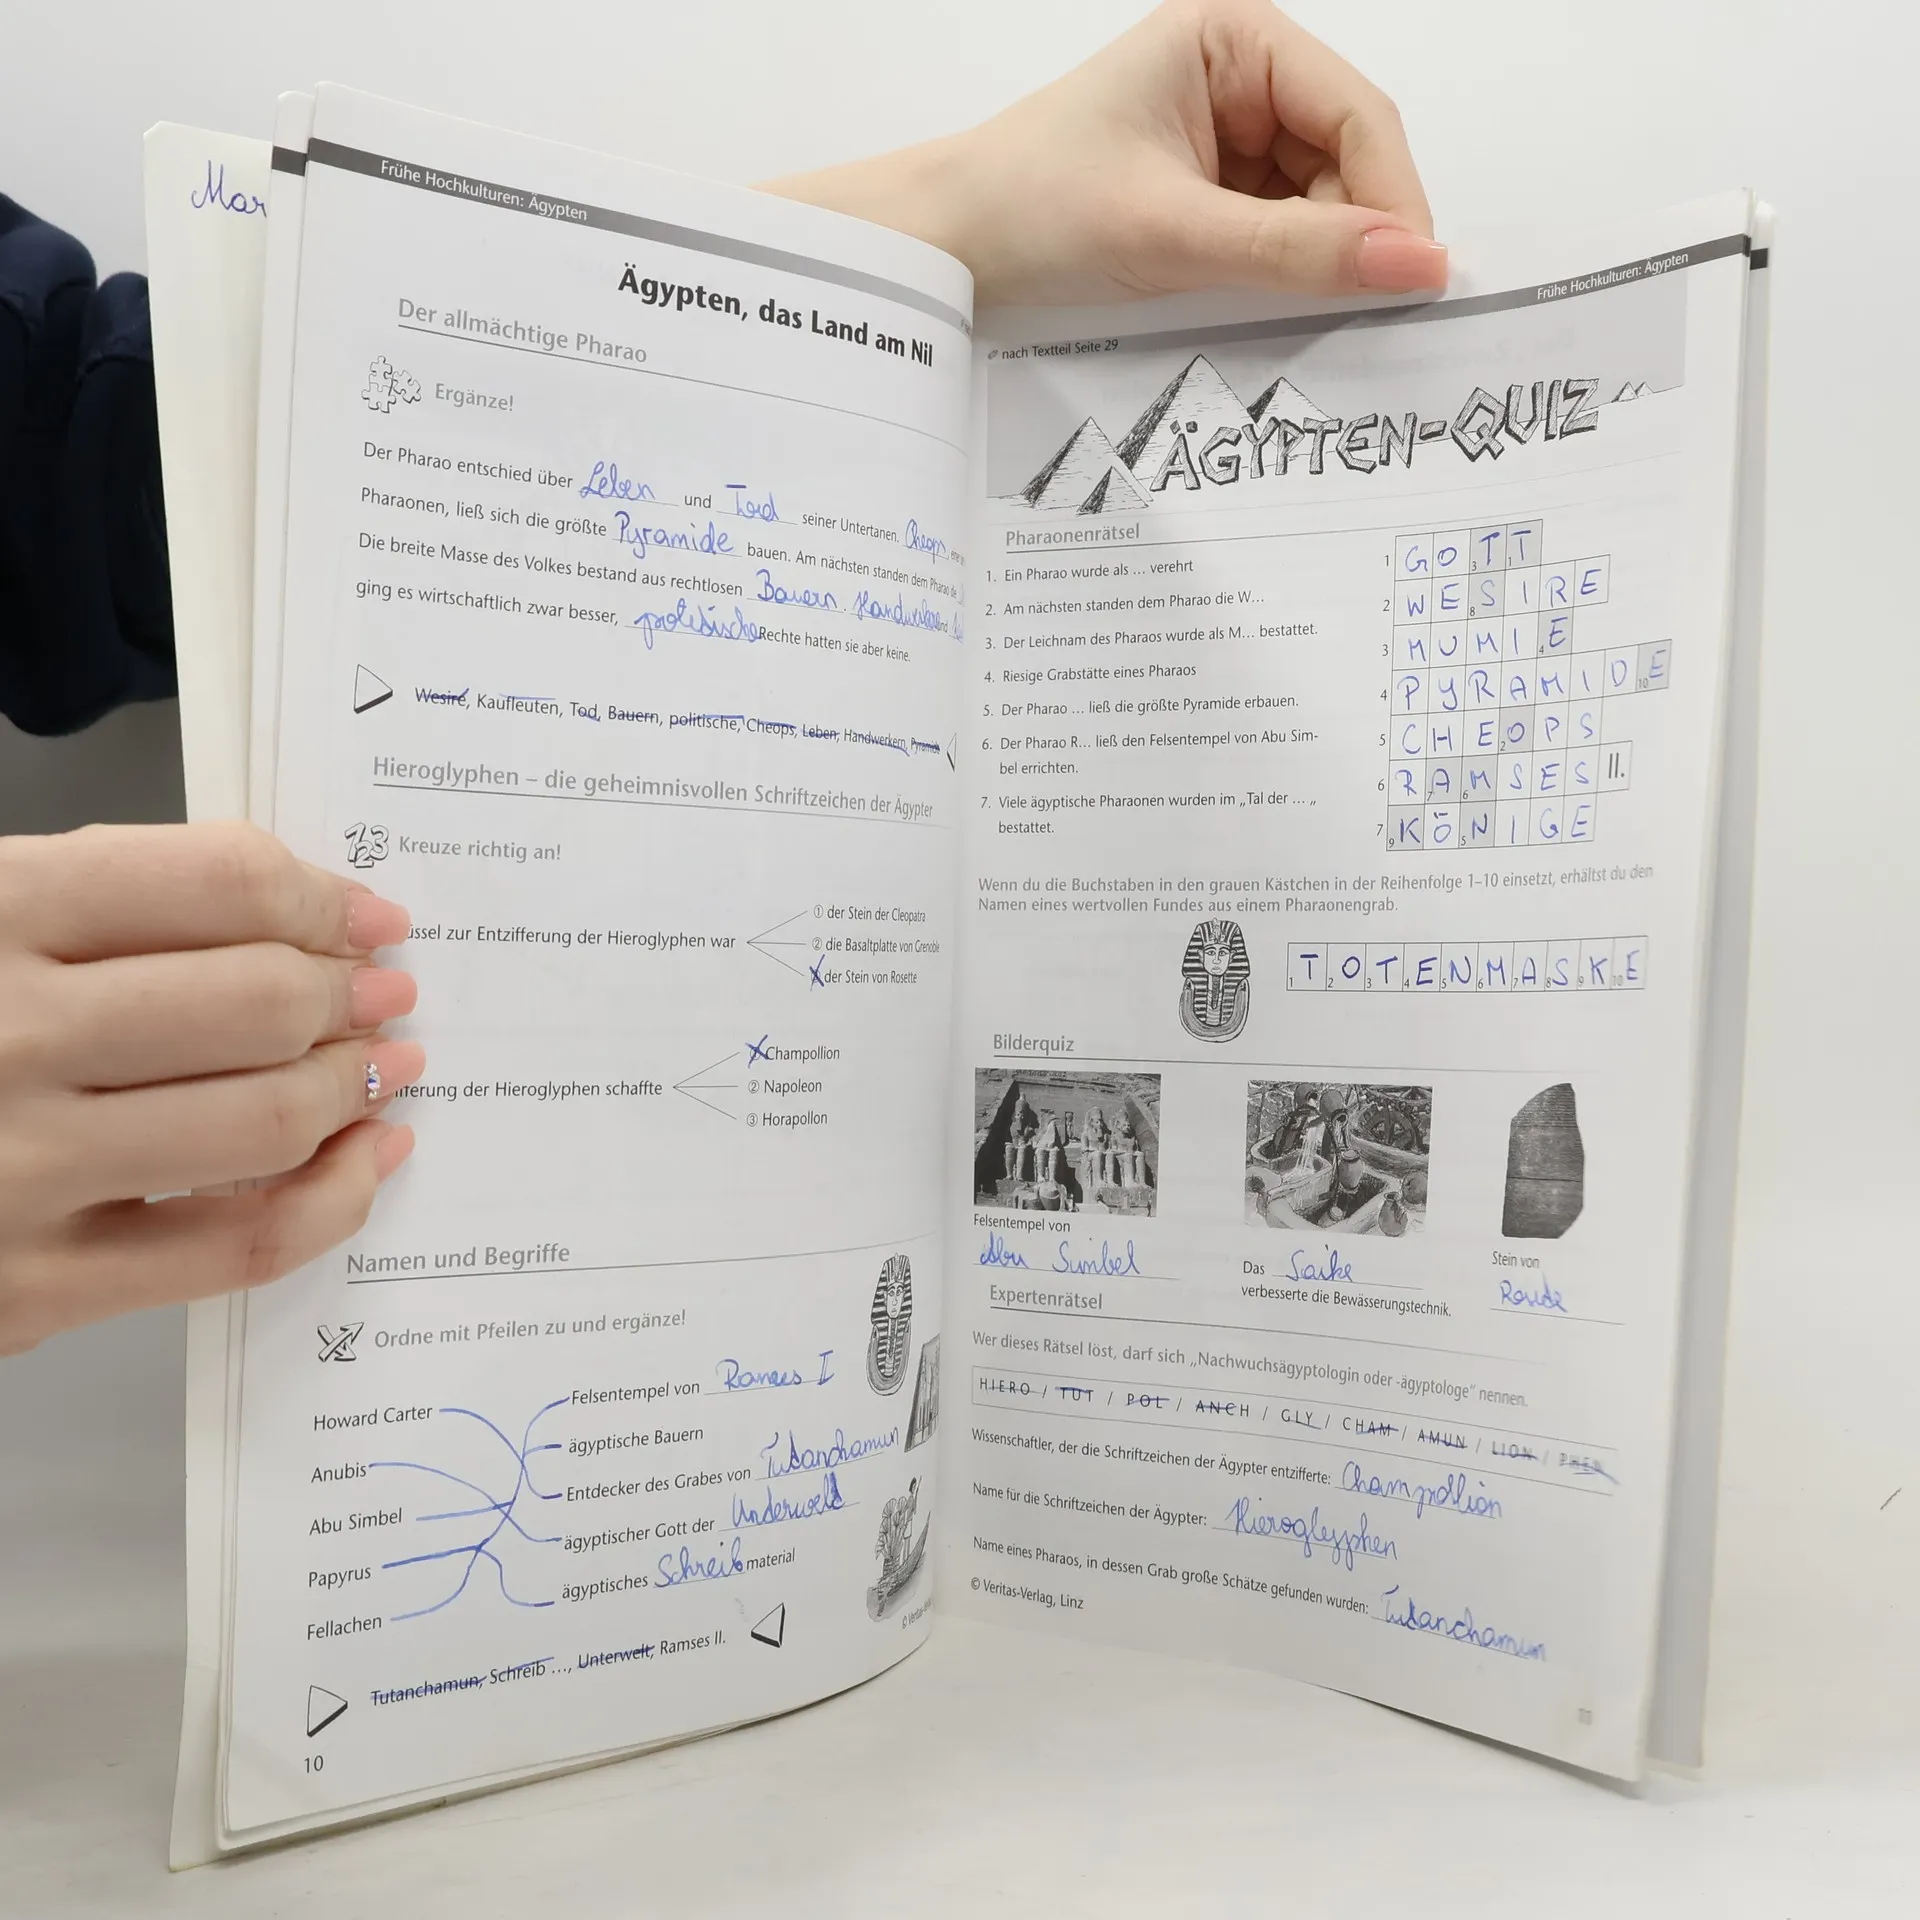 Mar
Frühe Hochkulturen: Ägypten
Ägypten, das Land am Nil
Der allmächtige Pharao
Ergänze!
Der Pharao entschied über Leben und Tod seiner Untertanen. Cheops,
Pharaonen, ließ sich die größte Pyramide bauen. Am nächsten standen dem Pharao die
Die breite Masse des Volkes bestand aus rechtlosen Bauern. Handwerkern und
ging es wirtschaftlich zwar besser, politische Rechte hatten sie aber keine.
Wesire, Kaufleuten, Tod, Bauern, politische, Cheops, Leben, Handwerkern, Pyramide
Hieroglyphen – die geheimnisvollen Schriftzeichen der Ägypter
123 Kreuze richtig an!
üssel zur Entzifferung der Hieroglyphen war
① der Stein der Cleopatra
② die Basaltplatte von Grenoble
der Stein von Rosette
ifferung der Hieroglyphen schaffte
Champollion
② Napoleon
③ Horapollon
Namen und Begriffe
Ordne mit Pfeilen zu und ergänze!
Howard Carter
Anubis
Abu Simbel
Papyrus
Fellachen
Felsentempel von Ramses I
ägyptische Bauern
Entdecker des Grabes von Tutanchamun
ägyptischer Gott der Underweld
ägyptisches Schreibmaterial
Tutanchamun, Schreib ..., Unterwelt, Ramses II.
10
Frühe Hochkulturen: Ägypten
nach Textteil Seite 29
ÄGYPTEN-QUIZ
Pharaonenrätsel
1. Ein Pharao wurde als ... verehrt
2. Am nächsten standen dem Pharao die W...
3. Der Leichnam des Pharaos wurde als M... bestattet.
4. Riesige Grabstätte eines Pharaos
5. Der Pharao ... ließ die größte Pyramide erbauen.
6. Der Pharao R... ließ den Felsentempel von Abu Sim-
bel errichten.
7. Viele ägyptische Pharaonen wurden im „Tal der ... „
bestattet.
1 GOTT
2 WESIRE
3 MUMIE
4 PYRAMIDE
5 CHEOPS
6 RAMSES II.
7 KÖNIGE
Wenn du die Buchstaben in den grauen Kästchen in der Reihenfolge 1–10 einsetzt, erhältst du den
Namen eines wertvollen Fundes aus einem Pharaonengrab.
TOTENMASKE
Bilderquiz
Felsentempel von
Abu Simbel
Das Saike
verbesserte die Bewässerungstechnik.
Stein von
Expertenrätsel
Wer dieses Rätsel löst, darf sich „Nachwuchsägyptologin oder -ägyptologe" nennen.
HIERO / TUT / POL / ANCH / GLY / CHAM / AMUN / LION / PHEN
Wissenschaftler, der die Schriftzeichen der Ägypter entzifferte: Champollion
Name für die Schriftzeichen der Ägypter: Hieroglyphen
Name eines Pharaos, in dessen Grab große Schätze gefunden wurden: Tutanchamun
© Veritas-Verlag, Linz